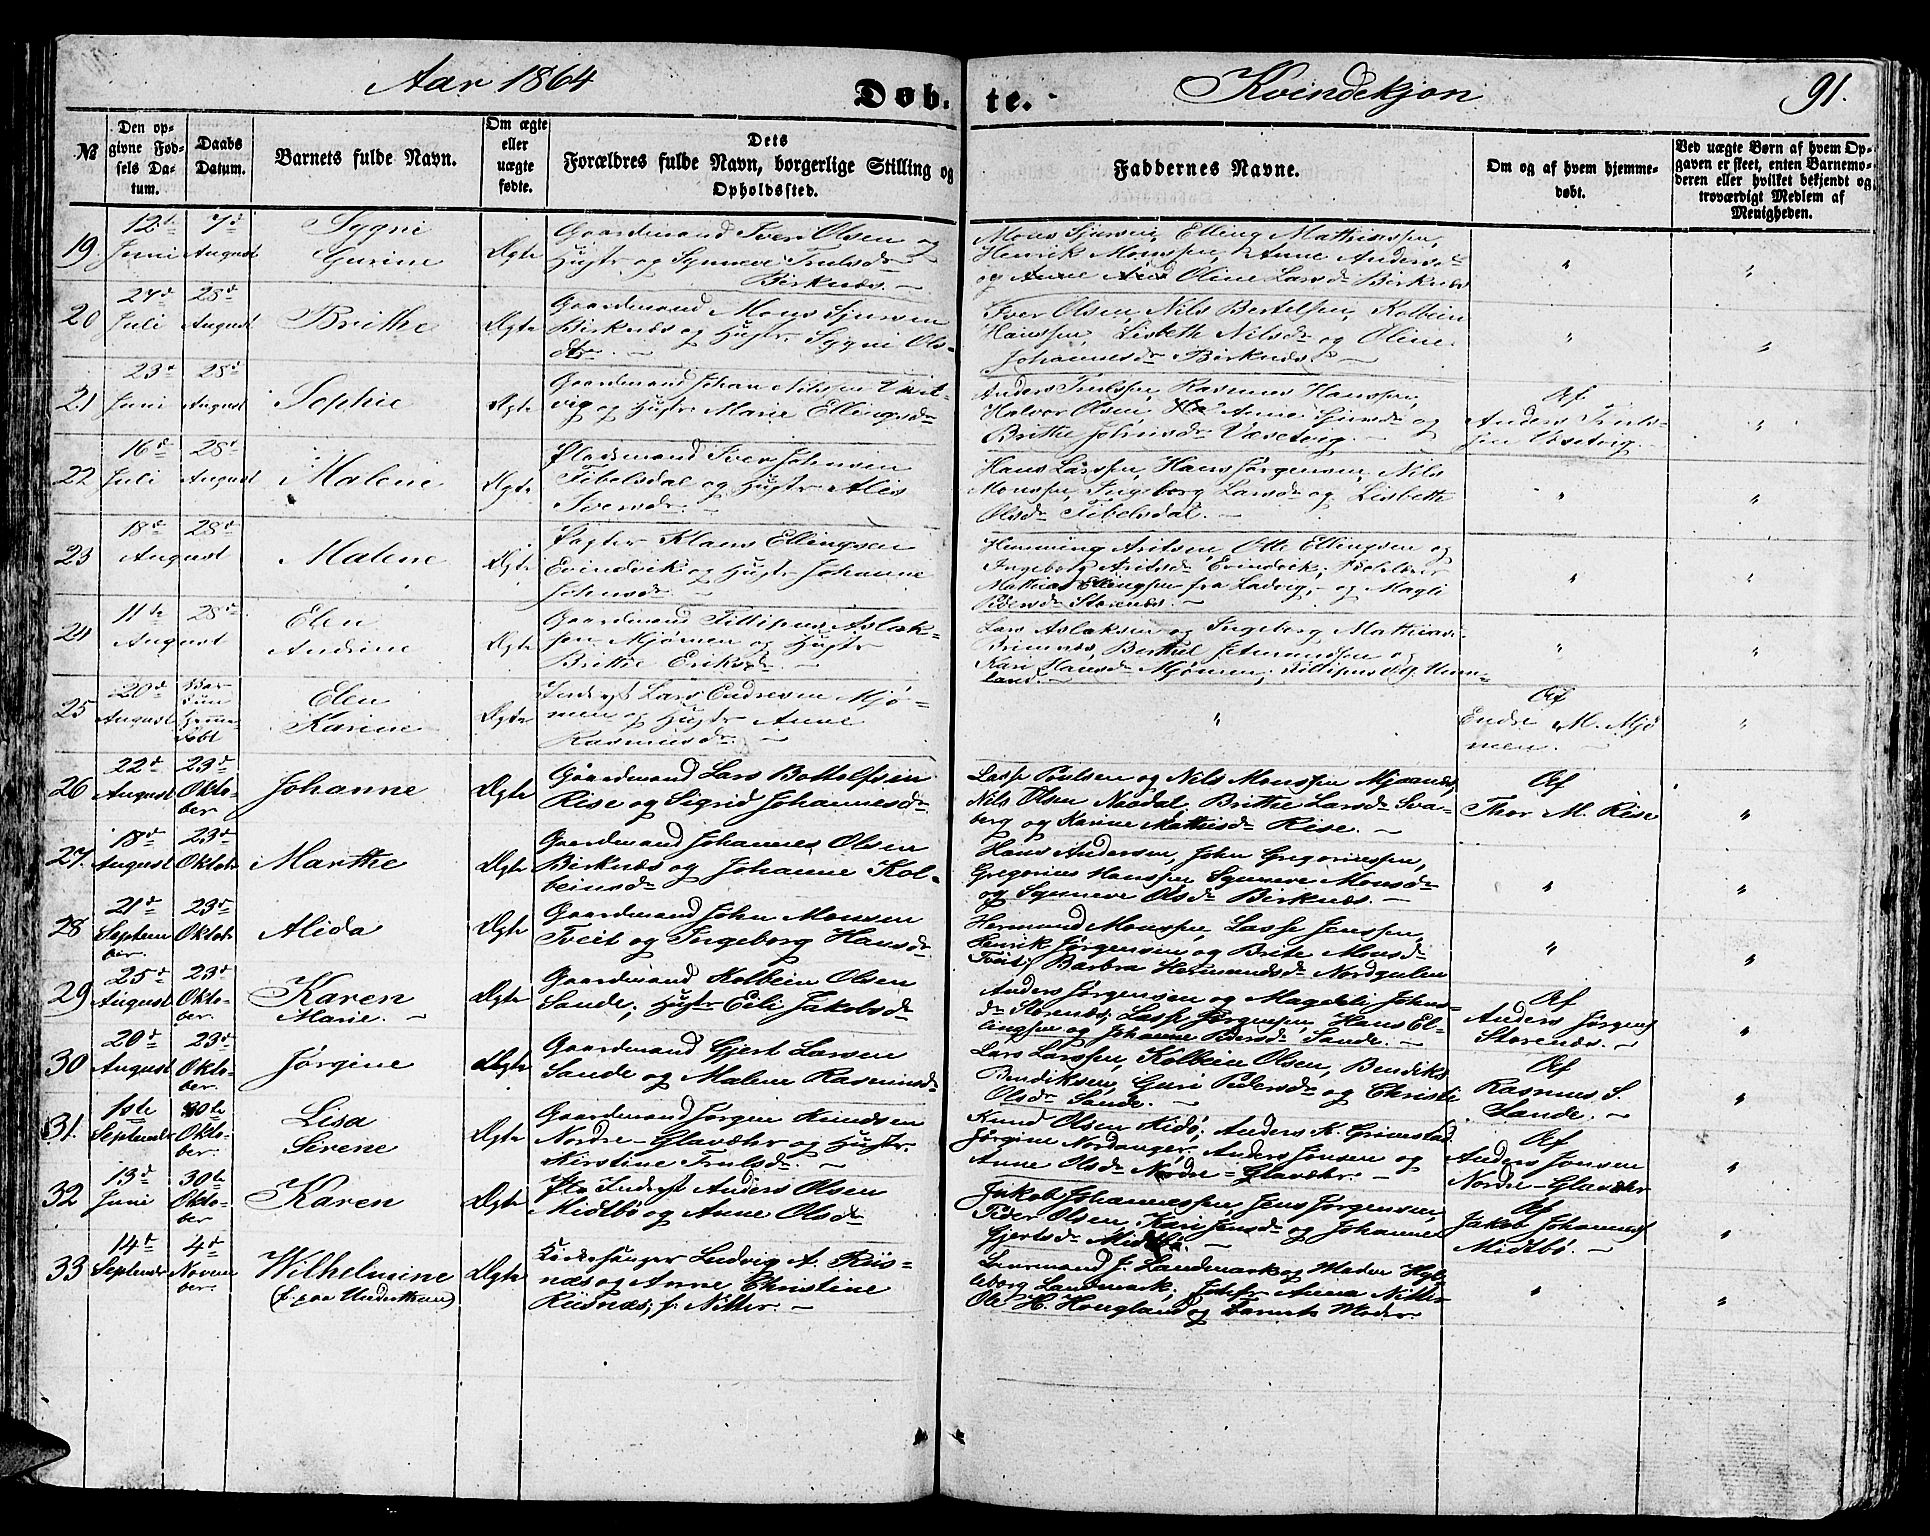 Aar 1864 Døb- te. Kvindekjøn 91.
№
Den op-
givne Fød-
sels Da-
tum.
Daabs
Datum.
Barnets fulde Navn.
Om ægte
eller
uægte
fødte.
Dets
Forældres fulde Navn, borgerlige Stilling og
Opholdssted.
Faddernes Navne.
Om og af hvem hjemme-
døbt.
Ved uægte Børn af hvem Op-
gaven er skeet, enten Barnemo-
deren eller hvilket bekjendt og
troværdigt Medlem af
Menigheden.
19. 12te Juni
7d August
Sygni
Gurine
Ægte
Gaardmand Iver Olsen og
Hustr og Synneve Trulsdr
Birknæs. —
Mons Sjursen, Elling Mathiassen,
Henrik Monssen, Anne Andersd
og Oline Larsdr Birknæs
" "
20 27d Juli
28d August
Brithe
Ægte
Gaardmand Mons Sjursen
Birknæs og Hustr. Sygni Ols-
dtr. —
Iver Olsen, Nils Bertelsen, Kolbein
Hanssen, Lisbeth Nilsdr og Oline
Johannesdr Birknæs. —
" "
21 23d Juni
28d August
Sophie
Ægte
Gaardmand Johan Nilssen
vig og Hustr Marie Ellingsdr
Anders Trulssen, Rasmus Hanssen,
Halvor Olsen, Anne Sjursdr og
Brithe Johnsdr —
Af
Anders Truls-
sen
"
22 16d Juli
28d August
Malene
Ægte
Pladsmand Iver Johnsen
Tibelsdal og Hustr. Alis
Iversdr. —
Hans Larssen, Hans Jørgensen, Nils
Monssen, Ingeborg Larsdr og Lisbeth
Olsdr Tibelsdal. —
" "
23 18d 28d
August
Malene
Ægte
Pagter Klaus Ellingsen
Evindvik og Hustr Johanne
Johnsdr. —
Hemming Aritsen, Otte Ellingsen og
Ingeborg Aritsdr Evindvik,
Mathias Ellingsen fra Ladvig, og Magli
Pedersdr Storenæs. —
" "
24 11te 28d
August
Elen
Andrine
Ægte
Gaardmand Fillipus Aslak-
sen Mjømen og Hustr
Brithe Eriksdr —
Lars Aslaksen og Ingeborg Mathiasd
Brimnæs, Berthel og
Kari Hansdr Mjømen,
land. —
" "
25 20d August
døbt
Elen
Karine
Ægte
Inderst Lars Endresen Mjø-
men og Hustr Anne
Rasmusdr. —
"
Af
Endre M. Mjø
men. —
"
26 22d August
23d Okto-
ber
Johanne
Ægte
Gaardmand Lars Bottolfsen
Rise og Sigrid Johannesdr
Lasse Poulsen og Nils Monssen Mjaanæs,
Nils Olsen Naadal, Brithe Larsdr Sva-
berg og Karine Mathisdr Rise. —
Af
Thor M. Rise
"
27. 18d August
23d Oktob
Marthe
Ægte
Gaardmand Johannes Olsen
Birknæs og Johanne Kol-
beinsdr
Hans Andersen, John Gregoriussen,
Gregorius Hanssen Synneve Monsdr
og Synneve Olsdr Birknæs. —
" "
28 21d Septem
ber.
23d Oktob
Alida
Ægte
Gaardmand John Monsen
Tveit og Ingeborg Hansdr
Hermund Monssen, Lasse Jenssen,
Henrik Jørgensen og Brite Monsdr
Tveit; Barbra Hermundsdr Nordgulen
" "
29 25d August
23d Okto-
ber.
Karen
Marie. —
Ægte
Gaardmand Kolbein Olsen
Sande; Hustr Eli Jakobsdr
Anders Jørgensen og Magdeli Johns-
dr Storenæs; Lasse Jørgensen, Hans El-
lingsen og Johanne Pedersdr Sande. —
Af
Anders Jørgens
Storenæs. —
"
30 20d August
23d Okto-
ber.
Jørgine
Ægte
Gaardmand Gjert Larsen
Sande og Malene Rasmusdr
Lars Larssen, Kolbein Olsen, Bendiks
Bendiksen, Guri Pedersdr og Christi
Olsdr Sande. —
Af
Rasmus S.
Sande. —
"
31. 1ste Septembr
30te Okto-
ber.
Lisa
Sirene
Ægte
Gaardmand Jørgen Knudsen
Nordre-Glavær og Hustr.
Kirstine Trulsdr. —
Knud Olsen Hidø, Anders K. Grinestad
Jørgine Nordanger, Anders Jonsen og
Anne Olsdr Nordre-Glavær. —
Af
Anders Jonsen
Nordre-Glavær
"
32 13d Juni
30te Okto-
ber
Karen
Ægte
Pl. Inderst Anders Olsen
Midtbø og Anne Olsdr
Jakob Johannessen, Jens Jørgensen,
Peder Olsen, Kari Jensdr og Johanne
Gjertsdr Midtbø —
Af
Jakob Johanness
Midtbø. —
"
33 14d Septembr
4d Novem
ber.
Wilhelmine
(f. paa Underthun)
Ægte
Kirkesanger Ludvig A. Riis-
næs og Anne Christine
Riisnæs; f. Nitter. —
Lensmand J. Landmark og Madme Hyl-
leborg Landmark, Jomfr Anna Nitter
Ole H. Hougland og Barnets Moder.
" "